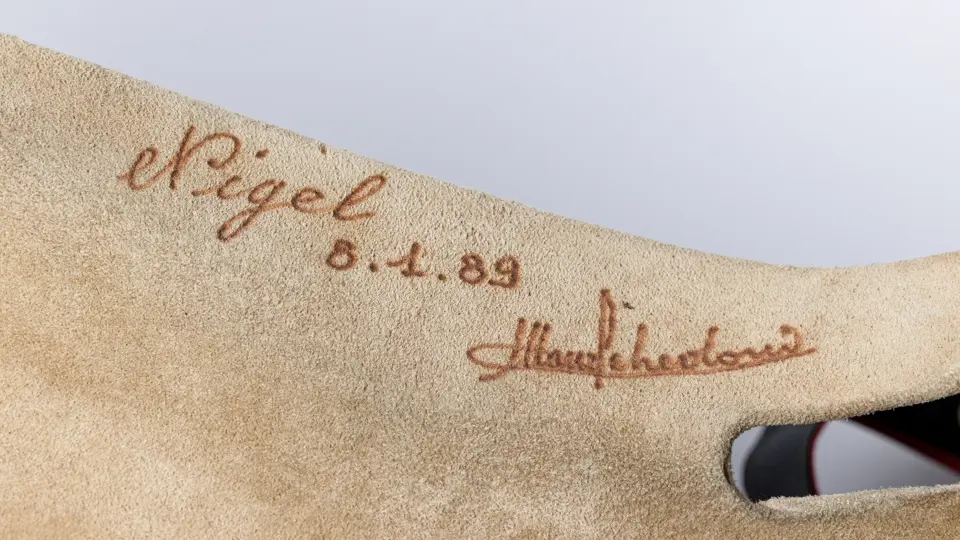 Nigel
8.1.89